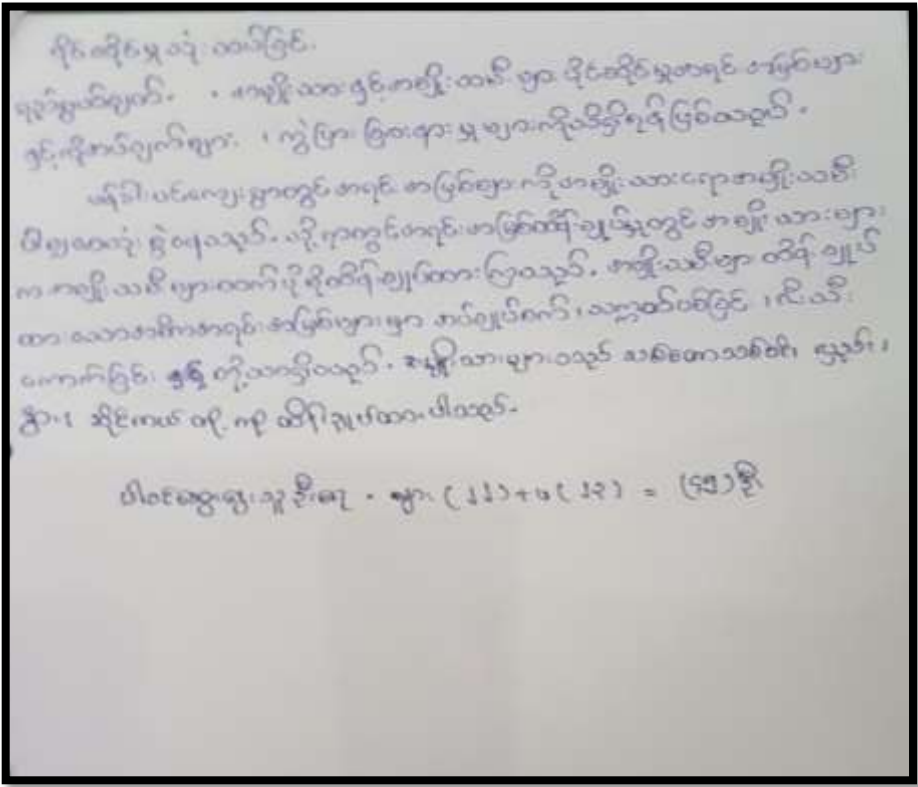 ပိုင်ဆိုင်မှုသုံးသပ်ခြင်း
ရည်ရွယ်ချက်။ ။ အမျိုးသားနှင့်အမျိုးသမီးများ ပိုင်ဆိုင်မှုအရင်းအမြစ်များ
နှင့်ကိုအပ်ချက်များ ၊ ကွဲပြားခြားနားမှုများကိုသိရှိရန်ဖြစ်သည်။
ပန်ဒါးပင်ကျေးရွာတွင်အရင်းအမြစ်များကိုအမျိုးသားရောအမျိုးသမီး
ပါမျှဝေသုံးစွဲနေသည်။ သို့ရာတွင်အရင်းအမြစ်ထိန်းချုပ်မှုတွင်အမျိုးသားများ
ကအမျိုးသမီးများထက်ပိုမိုထိန်းချုပ်ထားကြသည်။ အမျိုးသမီးများထိန်းချုပ်
ထားသောအဓိကအရင်းအမြစ်များမှာ အပ်ချုပ်စက်၊ သက္ကယ်ပစ်ခြင်း၊ သီး
ကောက်ခြင်း နှင့် တို့သာရှိသည်။ အမျိုးသားများသည် သစ်တောသစ်ပင်၊ လှည်း၊
နွား၊ ဆိုင်ကယ် တို့ ကို ထိန်းချုပ်ထားပါသည်။
ပါဝင်ဆွေးနွေးသူဦးရေ - ကျား (၂၂)+မ(၂၃) = (၄၅)ဦး